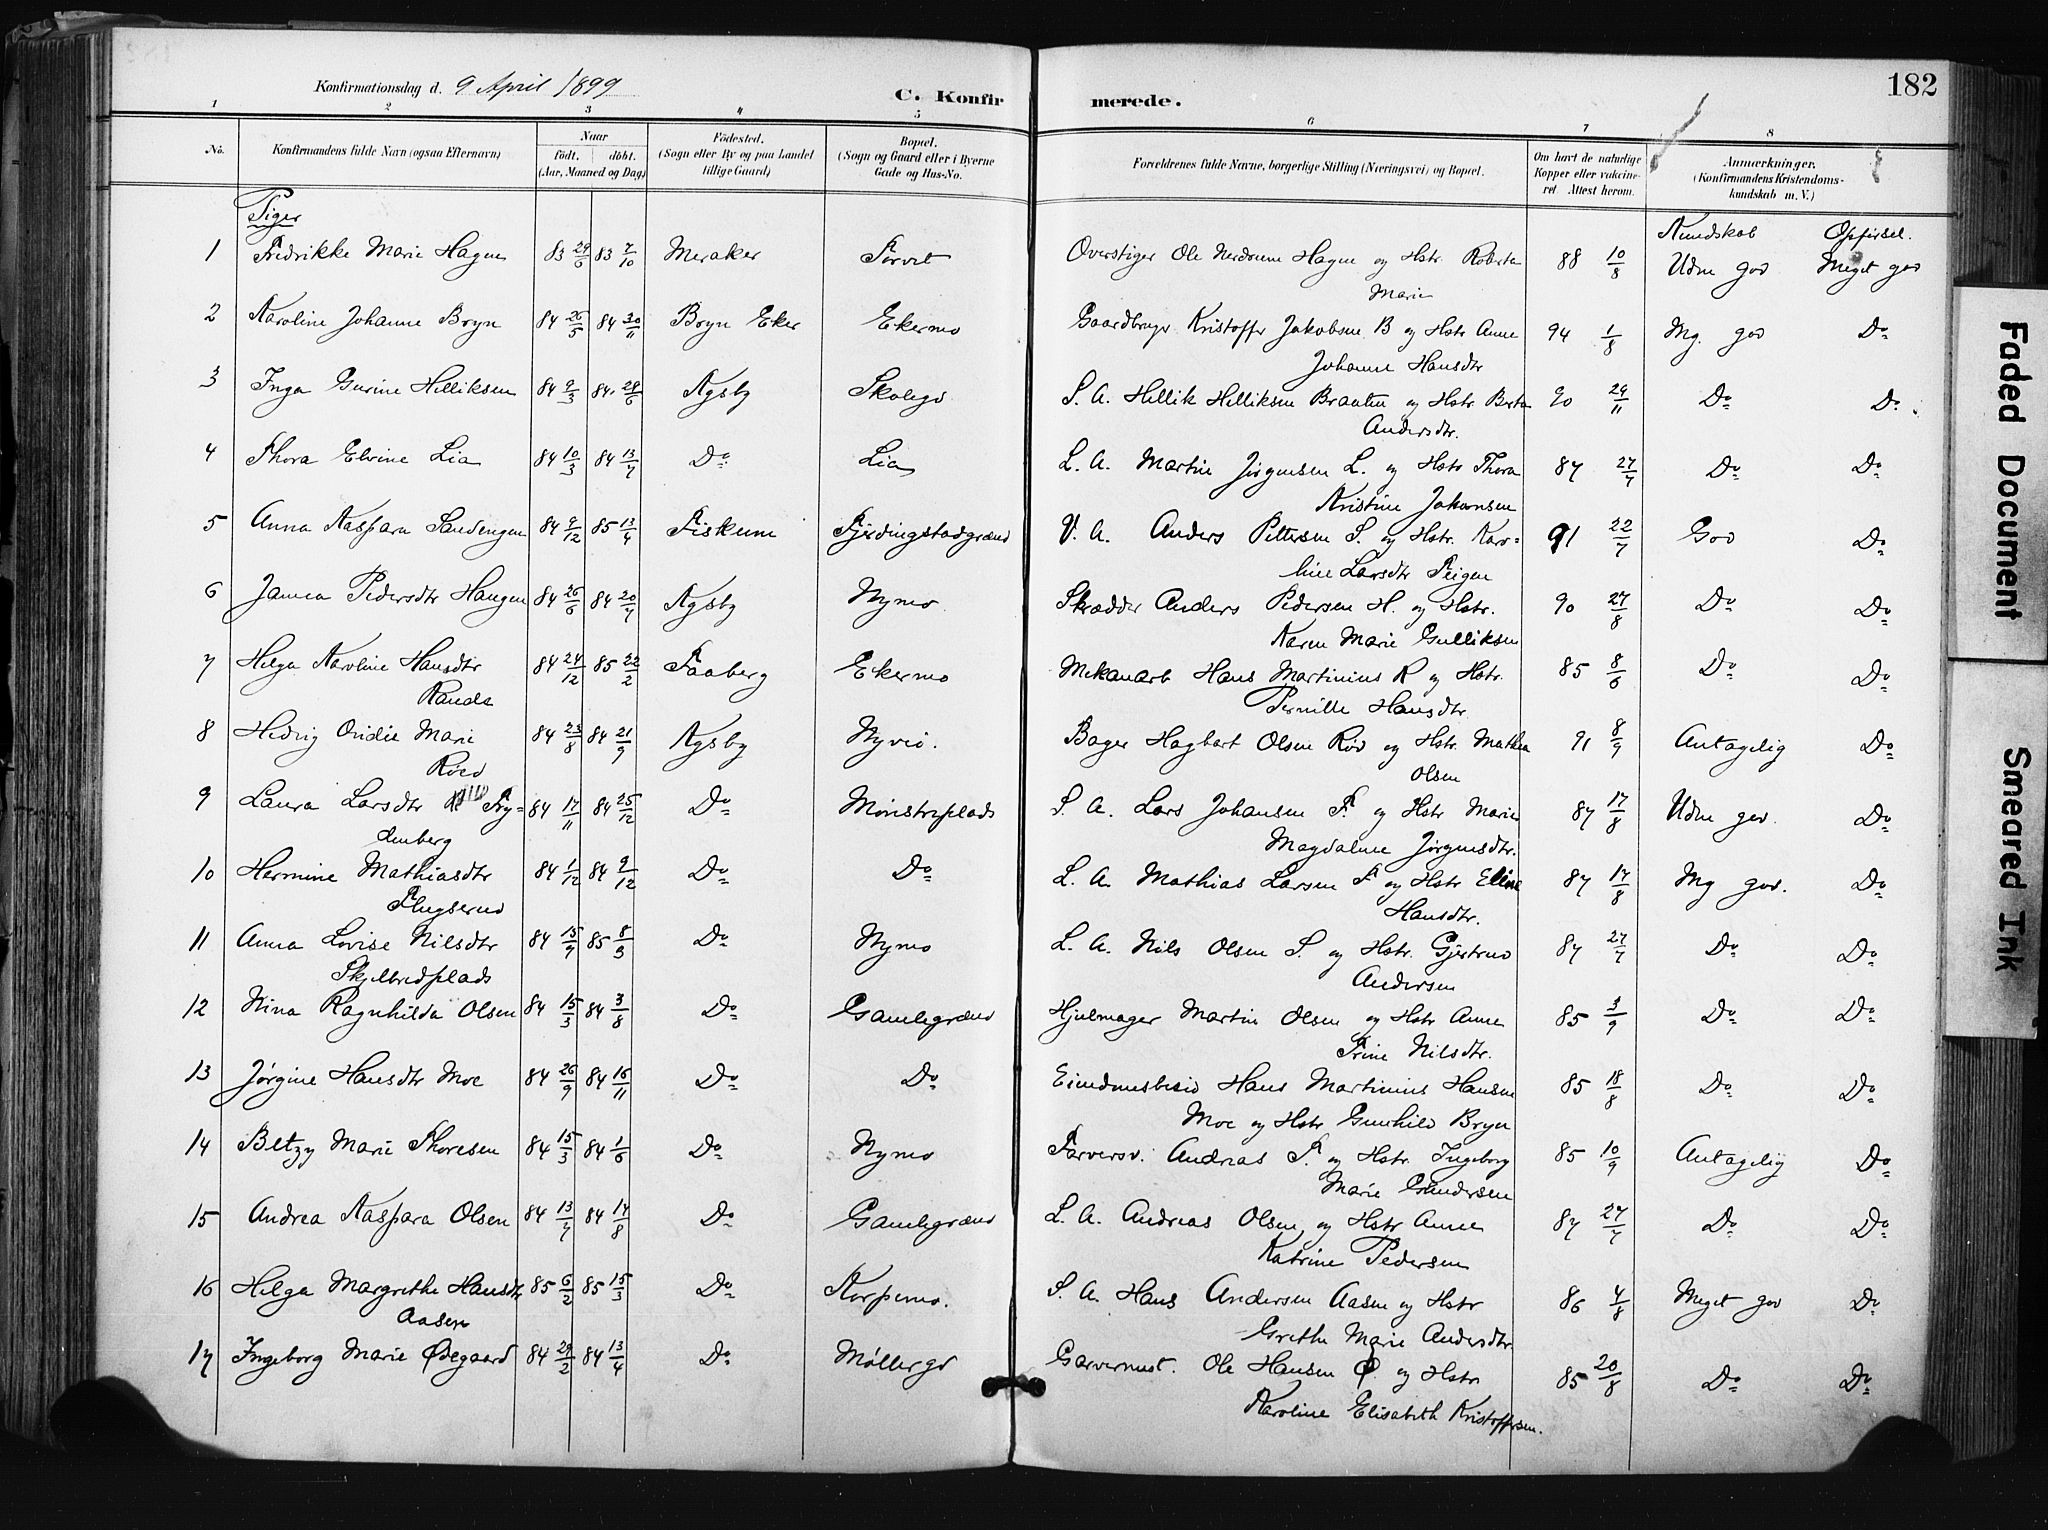 Konfirmationsdag d. 9 April 1899
C. Konfir merede.
182
1 2 3 4 5 6 7 8
No.
Konfirmandens fulde Navn (ogsaa Efternavn)
Naar
födt. döbt.
(Aar, Maaned og Dag)
Födested.
(Sogn eller By og paa Landet
tillige Gaard)
Bopæl.
(Sogn og Gaard eller i Byerne
Gade og Hus-No.
Forældrenes fulde Navne, borgerlige Stilling (Næringsvei) og Bopæl.
Om havt de naturlige
Kopper eller vakcine-
ret Attest herom.
Anmærkninger.
(Konfirmandens Kristendoms-
kundskab m. V.)
Piger
Kundskab Opførsel.
1 Fredrikke Marie Hagen 83 29/6 83 7/10 Meraker Torvet Overstiger Ole Hagen og Hstr Roberta 88 10/8 Udm god Meget god
Marie
2 Karoline Johanne Bryn 84 26/5 84 30/11 Bryn Eker Ekermo Gaardbruger Kristoffer Jakobsen B og Hstr Anne 94 1/8 Mg. god Do
Johanne Hansdtr
3 Inga Gurine Helliksen 84 9/3 84 28/6 Kgsby Skolegd S. A. Hellik Helliksen Braaten og Hstr Berta 90 29/11 Do Do
Andersdtr.
4 Thora Elvine Lia 84 10/3 84 13/7 Do Lia L. A. Martin Jørgensen L. og Hstr Thora 87 27/7 Do Do
Kristine Johansen
5 Anna Kaspara Sandengen 84 9/12 85 13/4 Fiskum Fjerdingstadgrænd V. A. Anders Pettersen S. og Hstr. Karo- 91 22/7 God Do
line Larsdtr Teigen
6 Janna Pedersdtr Haugen 84 26/6 84 20/7 Kgsby Nymo Skrædder Anders Pedersen H. og Hstr. 90 27/8 Do Do
Karen Marie Gulliksen
7 Helga Karoline Hansdtr 84 24/12 85 22/2 Faaberg Ekermo Mekanarb Hans Martinius R og Hstr. 85 8/6 Do Do
Rands Pernille Hansdtr.
8 Hedvig Ovidie Marie 84 23/8 84 21/9 Kgsby Nyvei. Bager Hagbart Olsen Röd og Hstr. Mathea 91 8/9 Antagelig Do
Röed Olsen
9 Laura Larsdtr Fry- 84 17/11 84 25/12 Do Mönstreplads S. A. Lars Johansen F. og Hstr Marie 87 17/8 Udm god. Do
denberg Magdalene Jørgensdtr.
10 Hermine Mathiasdtr 84 1/12 84 9/12 Do Do L. A. Mathias Larsen F og Hstr Eline 87 17/8 Mg god. Do
Flugserud Hansdtr.
11 Anna Lovise Nilsdtr 84 15/9 85 8/3 Do Nymo L. A. Nils Olsen S. og Hstr. Gjertrud 87 27/7 Do Do
Skjelbredplads Andersen
12 Nina Ragnhilda Olsen 84 15/3 84 3/8 Do Gamlegrænd Hjulmager Martin Olsen og Hstr Anne 85 3/9 Do Do
Trine Nilsdtr.
13 Jørgine Hansdtr Moe 84 26/9 84 16/11 Do Do Eiendomsbesid Hans Martinius Hansen 85 18/8 Do Do
Moe og Hstr Gunhild Bryn
14 Betzy Marie Thoresen 84 15/3 84 1/6 Do Nymo Farversv. Andreas T. og Hstr. Ingeborg 85 10/9 Antagelig Do
Marie Gundersen
15 Andrea Kaspara Olsen 84 13/7 84 17/8 Do Gamlegrænd L. A. Andreas Olsen og Hstr Anne 87 27/7 Do Do
Katrine Pedersen
16 Helga Margrethe Hansdtr 85 6/2 85 15/3 Do Korpemo. S. A. Hans Andersen Aasen og Hstr 86 4/8 Meget god Do
Aasen Grethe Marie Andersdtr.
17 Ingeborg Marie Ødegaard 84 29/2 84 13/4 Do Møllergd Garvermest. Ole Hansen Ø. og Hstr 85 20/8 Do Do
Karoline Elisabeth Kristoffersen.
Faded Document
Smeared Ink